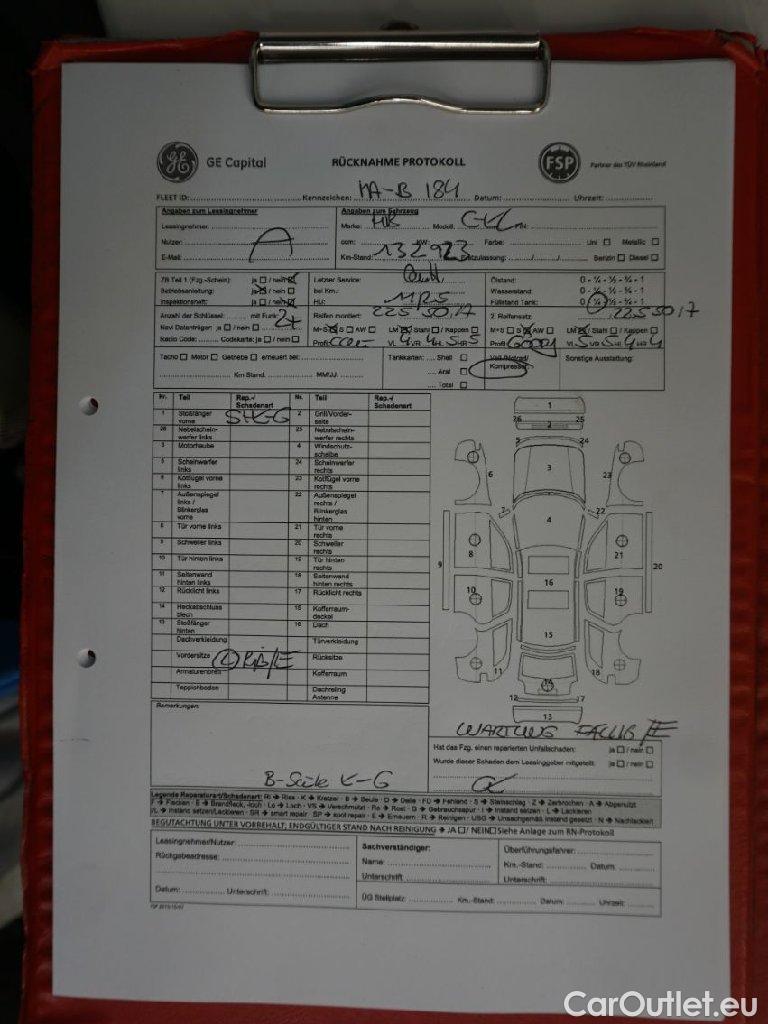 GE Capital RÜCKNAHME PROTOKOLL FSP Partner des TÜV Rheinland
FLEET ID: Kennzeichen: MA-B 184 Datum: Uhrzeit:
Angaben zum Leasingnehmer Angaben zum Fahrzeug
Leasingnehmer: Marke: Modell:
Nutzer: ccm: KW: Farbe: Uni Metallic
E-Mail: Km-Stand: 132923 Erstzulassung: Benzin Diesel
ZB Teil 1 (Fzg.-Schein): ja / nein Letzter Service: Ölstand: 0 - ¼ - ½ - ¾ - 1
Betriebsanleitung: ja / nein bei Km.: Wasserstand: 0 - ¼ - ½ - ¾ - 1
Inspektionsheft: ja / nein HU: Füllstand Tank: 0 - ¼ - ½ - ¾ - 1
Anzahl der Schlüssel: mit Funk: 2x Reifen montiert: 225 50,17 2. Reifensatz: 225 50,17
Navi Datenträger: ja / nein M+S S AW LM / Stahl / Kappen M+S S AW LM / Stahl / Kappen
Radio Code: Codekarte: ja / nein Profil Profil
Tacho Motor Getriebe erneuert bei: Tankkarten: Shell Voll-/Notrad/ Sonstige Ausstattung:
Aral Kompressor:
Km Stand: MM/JJ: Total
Nr. Teil Rep.-/ Schadenart Nr. Teil Rep.-/ Schadenart
1 Stoßfänger vorne 2 Grill/Vorderseite
26 Nebelscheinwerfer links 25 Nebelscheinwerfer rechts
3 Motorhaube 4 Windschutzscheibe
5 Scheinwerfer links 24 Scheinwerfer rechts
6 Kotflügel vorne links 23 Kotflügel vorne rechts
7 Außenspiegel links / Blinkerglas vorne 22 Außenspiegel rechts / Blinkerglas hinten
8 Tür vorne links 21 Tür vorne rechts
9 Schweller links 20 Schweller rechts
10 Tür hinten links 19 Tür hinten rechts
11 Seitenwand hinten links 18 Seitenwand hinten rechts
12 Rücklicht links 17 Rücklicht rechts
14 Heckabschluss blech 15 Kofferraumdeckel
13 Stoßfänger hinten 16 Dach
Dachverkleidung Türverkleidung
Vordersitze Rücksitze
Armaturenbrett Kofferraum
Teppichboden Dachreling Antenne
1
26 2 25
5 24
6 3 23
7 4 22
8 21
9 20
10 16 19
15
11 14 18
12 17
13
Bemerkungen:
WARTUNG FÄLLIG/E
Hat das Fzg. einen reparierten Unfallschaden: ja / nein
Wurde dieser Schaden dem Leasinggeber mitgeteilt: ja / nein
B-Säule K-G
Legende Reparaturart/Schadenart: Ri → Riss - K → Kratzer - B → Beule - D → Delle - FÜ → Fehlend - S → Steinschlag - Z → Zerbrochen - A → Abgenutzt
F → Flecken - B → Brandfleck, -loch - Lo → Loch - VS → Verschmutzt - Ro → Rost - G → Gebrauchsspur - I → Instand setzen - L → Lackieren
I/L → instand setzen/Lackieren - SR → smart repair - SP → spot repair - E → Erneuern - R → Reinigen - USG → Unsachgemäss instand gesetzt - N → Nachlackiert
BEGUTACHTUNG UNTER VORBEHALT, ENDGÜLTIGER STAND NACH REINIGUNG → JA / NEIN Siehe Anlage zum RN-Protokoll
Leasingnehmer/Nutzer: Sachverständiger: Überführungsfahrer:
Rückgabeadresse: Name: Km.-Stand: Datum:
Unterschrift: Unterschrift:
Datum: Unterschrift: ÜG Stellplatz: Km.-Stand: Datum: Uhrzeit:
CarOutlet.eu